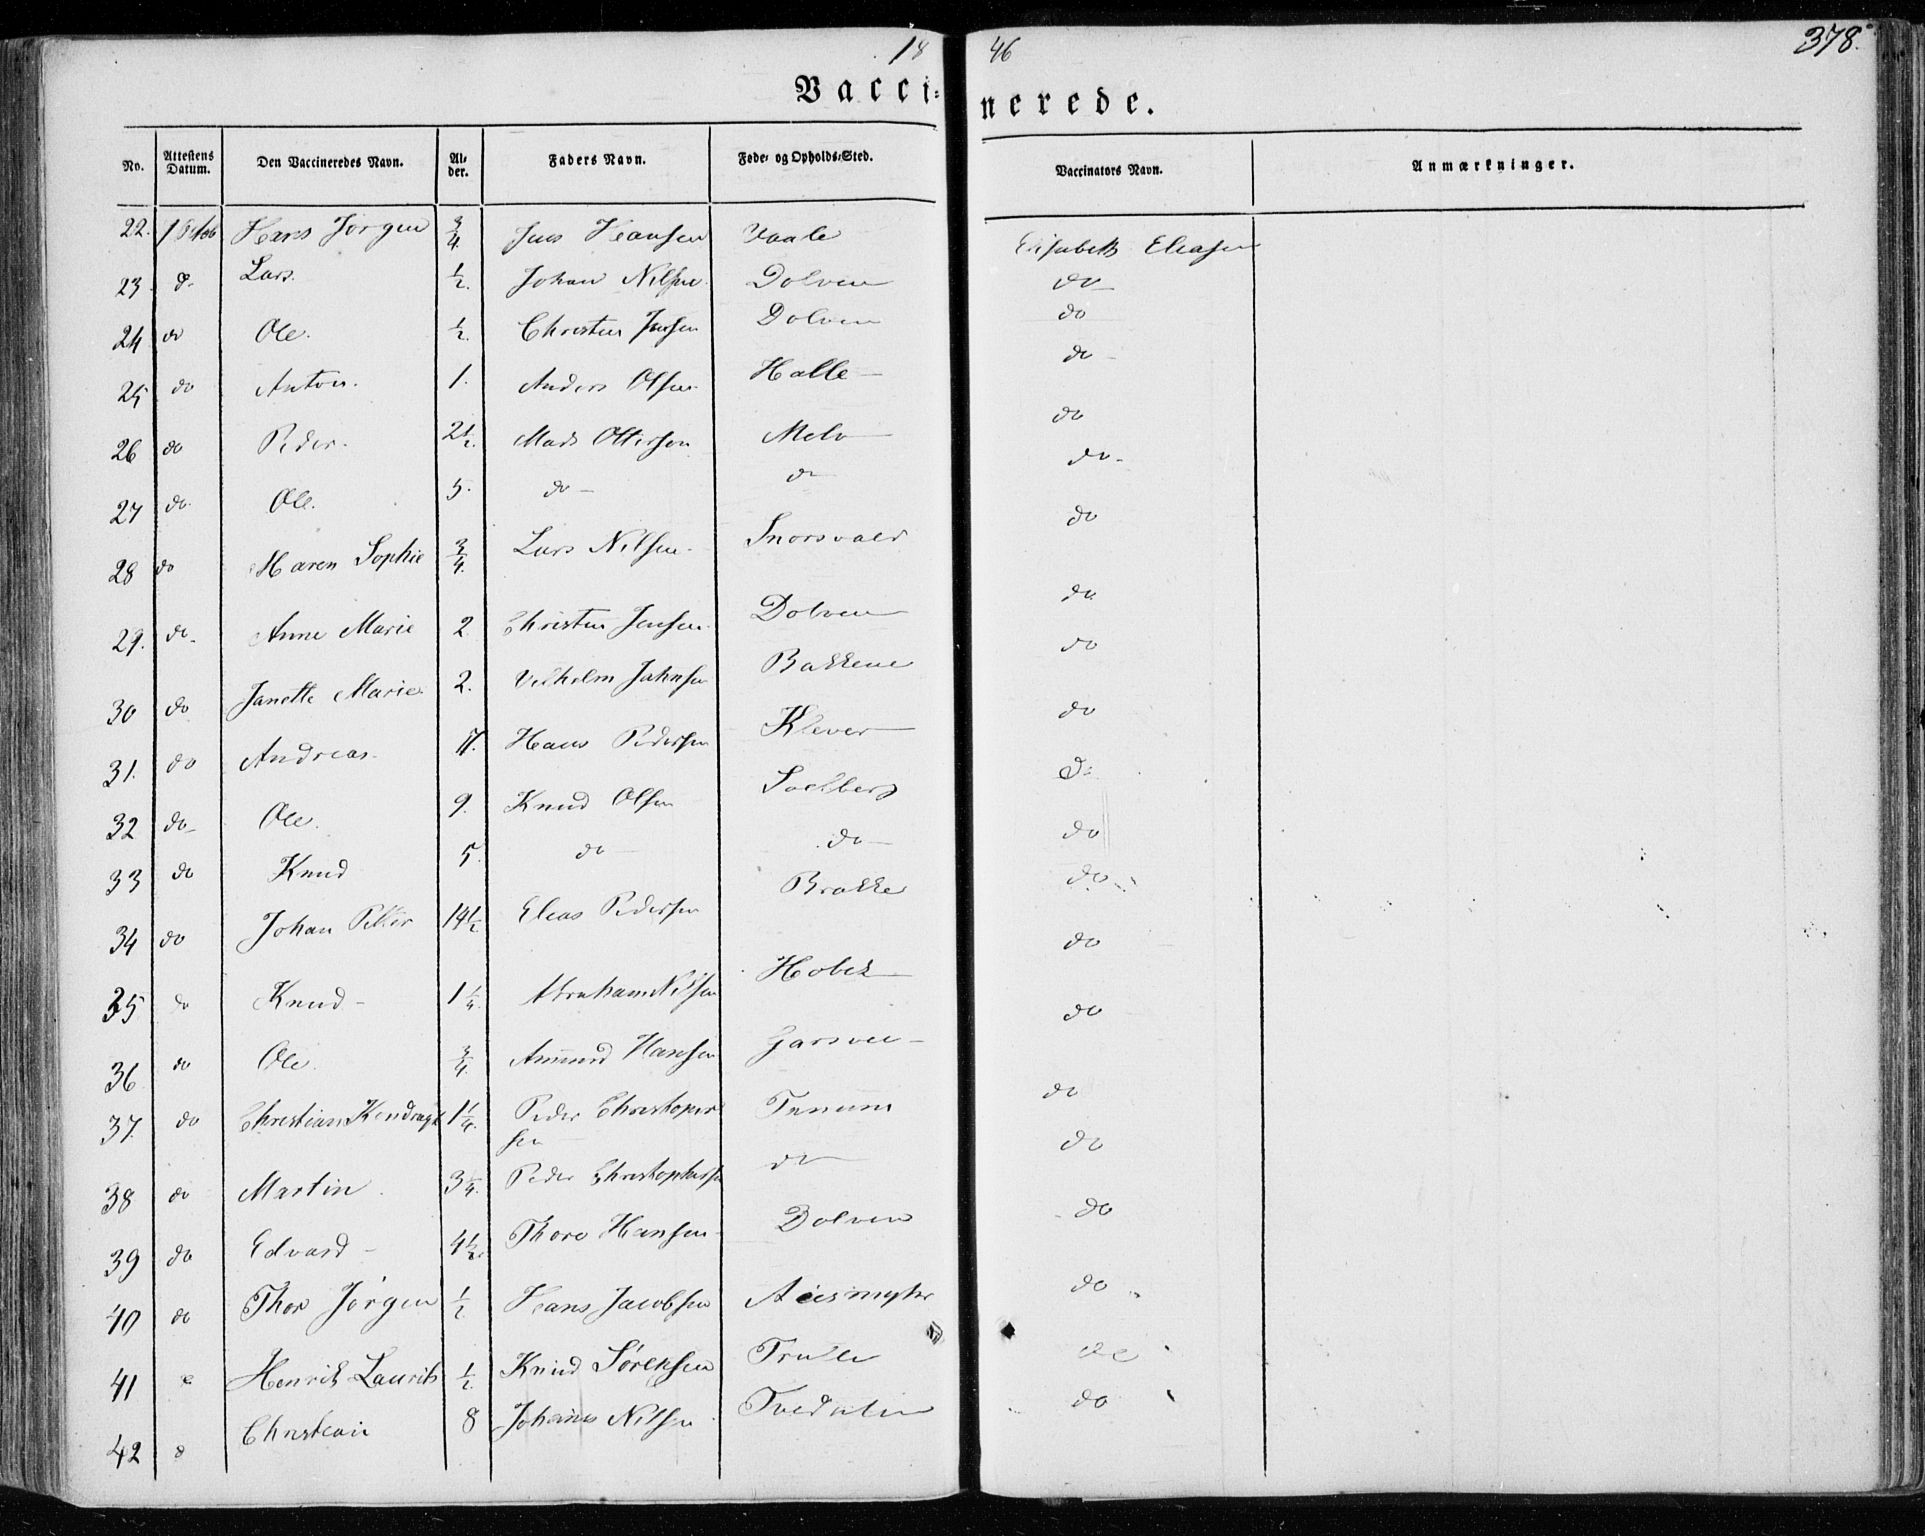 18 46
378.
Vacci- nerede.
No. Attestens Datum. Den Vaccineredes Navn. Al- der. Faders Navn. Føde- og Opholds-Sted. Vaccinators Navn. Anmærkninger.
22. Hans Jørgen 3/4 Jens Hansen Vaale Elisabeth Eleasen
23 do Lars. 1/2. Johan Nilsen Dolven do
24 do Ole. 1/2. Christen Jensen Dolven do
25 do Anton. 1. Anders Olsen Halle do
26 do Peder. 2 1/2. Mads Ottersen Melo do
27 do Ole. 5. do do do
28 do Maren Sophie 3/4. Lars Nilsen do
29. do Anne Marie 2. Christen Jensen Dolven do
30 do Janette Marie 2. Vilhelm Johnsen Bakkene do
31. do Andreas. Hans Pedersen Klever do
32 do Ole. 9. Knud Olsen Soelberg do
33 do Knud 5. do do do
34 do Johan Peter 14 1/2. Eleas Pedersen Brekke do
35 do Knud 1 1/4. Abraham Nilsen do
36 do Ole. 3/4. Amund Hansen do
37. do Christian 1 1/4. Peder Christopher
sen Tanum do
38 do Martin. 3 1/4. Peder Christophersen do do
39 do Edvard 4 1/2. Thore Hansen Dolven do
40 do Thor Jørgen 1/2. Hans Jacobsen do
41 Henrik Laurits 1/2. Knud Sørensen do
42 Christian 8 Johannes Nilsen do